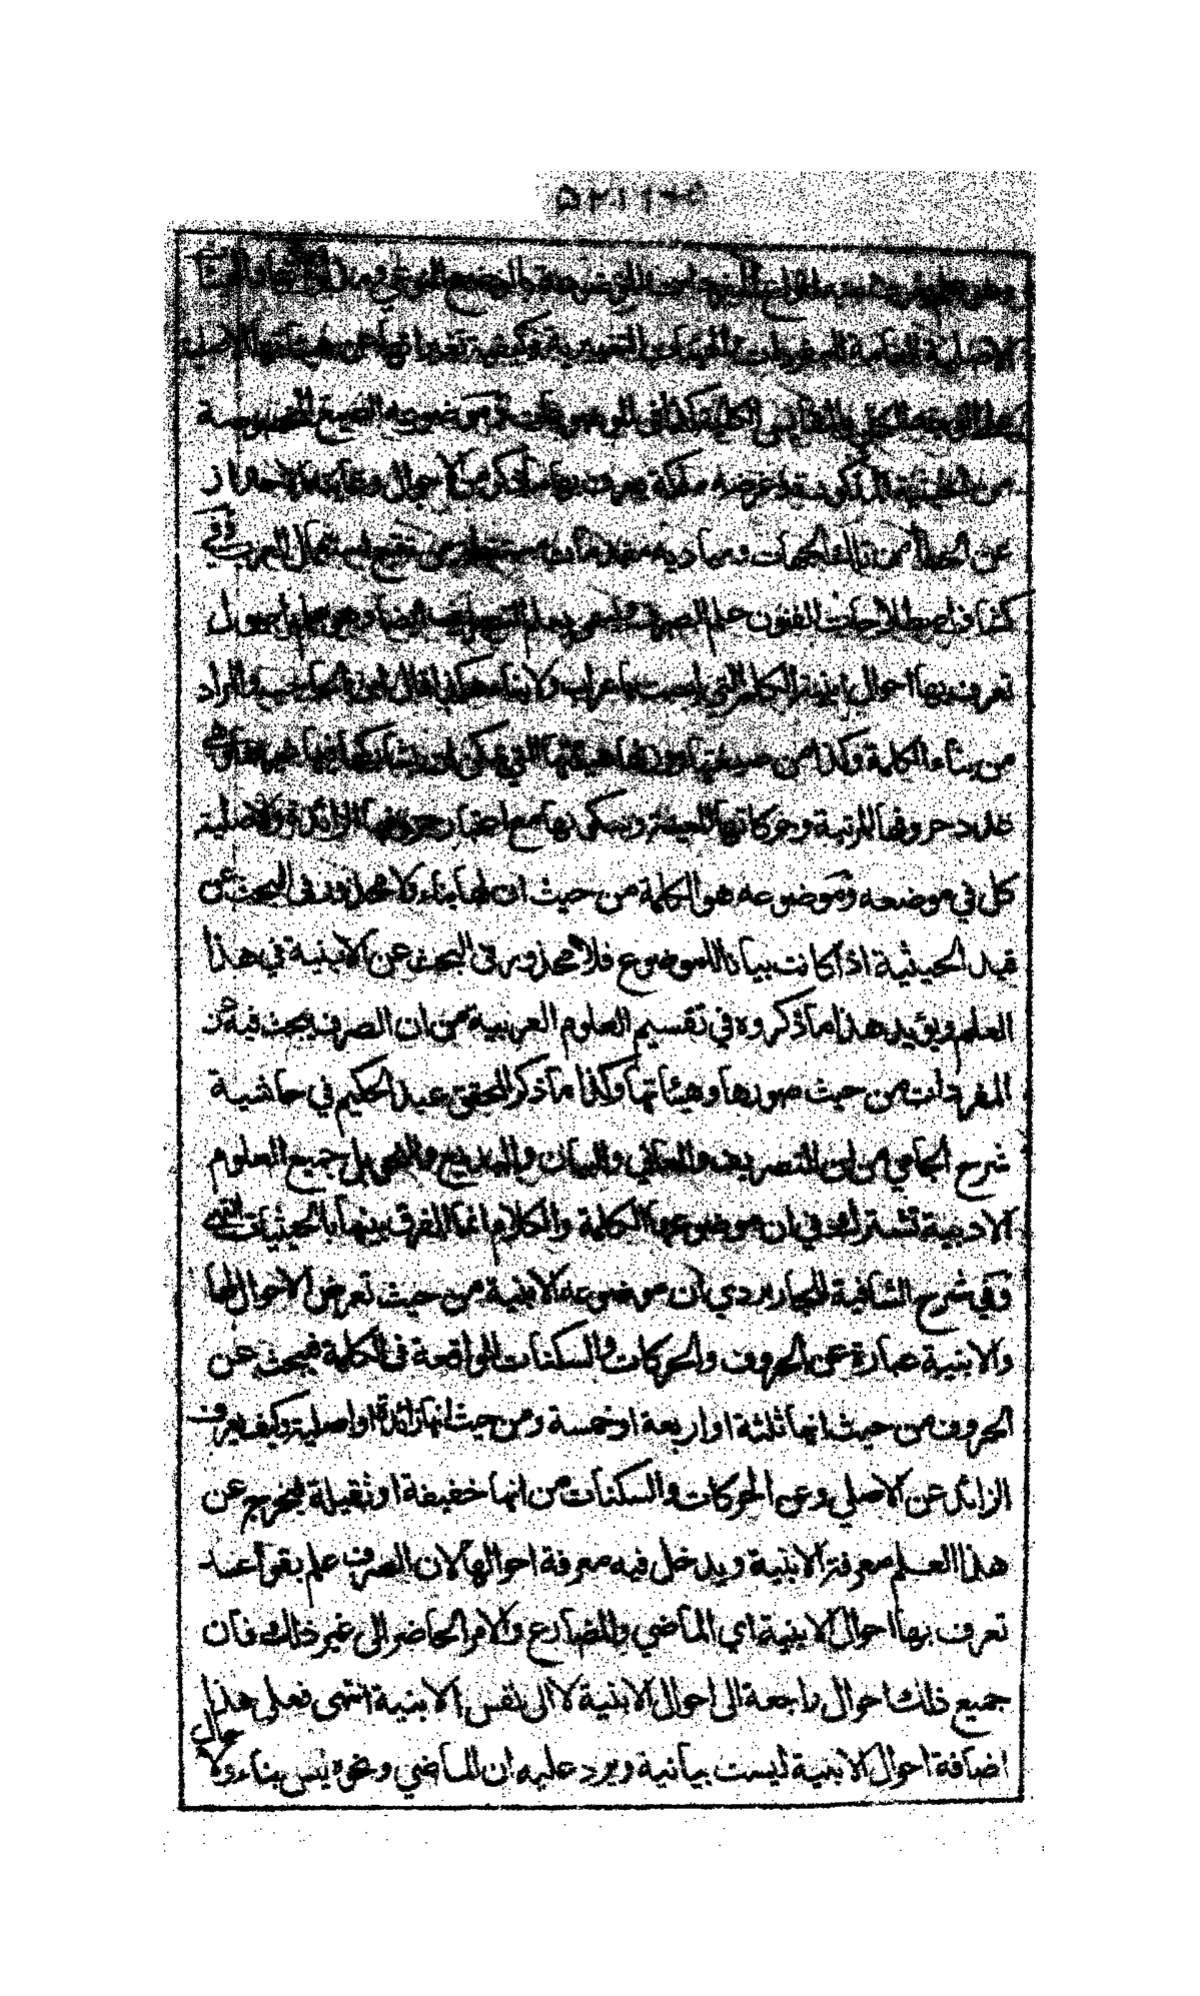 وهو علم يعرف منه انواع المفردات الموضوعة بالوضع النوعي ومدلولاتها والهيئات
الاصلية العامة للمفردات والهيئات التغييرية وكيفية تغيراتها عن هيئاتها الاصلية
على الوجه الكلي بالمقائيس الكلية كذا في الموضوعات وموضوعه الصيغ المخصوصة
من الحيثية المذكورة وغرضه ملكة يعرف بها ما ذكر من الاحوال وغايته الاحتراز
عن الخطأ من تلك الجهات ومباديه مقدمات مستنبطة من تتبع استعمال العرب وفي
كشاف اصطلاحات الفنون علم الصرف ويسمى بعلم التصريف ايضا وهو علم باصول
تعرف بها احوال ابنية الكلم التي ليست باعراب ولا بناء هكذا قال ابن الحاجب والمراد
من بناء الكلمة وكذا من صيغتها ووزنها هيئتها التي يمكن ان يشاركها فيها غيرها وهي
عدد حروفها المرتبة وحركاتها المعينة وسكونها مع اعتبار حروفها الزائدة والاصلية
كل في موضعه وموضوعه هو الكلمة من حيث ان لها بناء ولا محذور في البحث عن
قيد الحيثية اذا كانت بيانا للموضوع فلا محذور في البحث عن الابنية في هذا
العلم ويؤيد هذا ما ذكروه في تقسيم العلوم العربية من ان الصرف يبحث فيه عن
المفردات من حيث صورها وهيئاتها وكذا ما ذكر المحقق عبد الحكيم في حاشية
شرح الجامي من ان التصريف والمعاني والبيان والبديع والنحو بل جميع العلوم
الادبية تشترك في ان موضوعها الكلمة والكلام انما الفرق بينها بالحيثيات انتهى
وفي شرح الشافية للجاربردي ان موضوعه الابنية من حيث تعرض الاحوال لها
والابنية عبارة عن الحروف والحركات والسكنات الواقعة في الكلمة فيبحث عن
الحروف من حيث انها ثلثة او اربعة او خمسة ومن حيث انها زائدة او اصلية وكيف يعرف
الزائد عن الاصلي وعن الحركات والسكنات من انها خفيفة او ثقيلة فيخرج عن
هذا العلم معرفة الابنية ويدخل فيه معرفة احوالها لان الصرف علم بقواعد
تعرف بها احوال الابنية اي الماضي والمضارع والامر الحاضر الى غير ذلك فان
جميع ذلك احوال راجعة الى احوال الابنية لا الى نفس الابنية انتهى فعلى هذا
اضافة احوال الابنية ليست بيانية ويرد عليه ان الماضي ونحوه ليس ببناء ولا حال